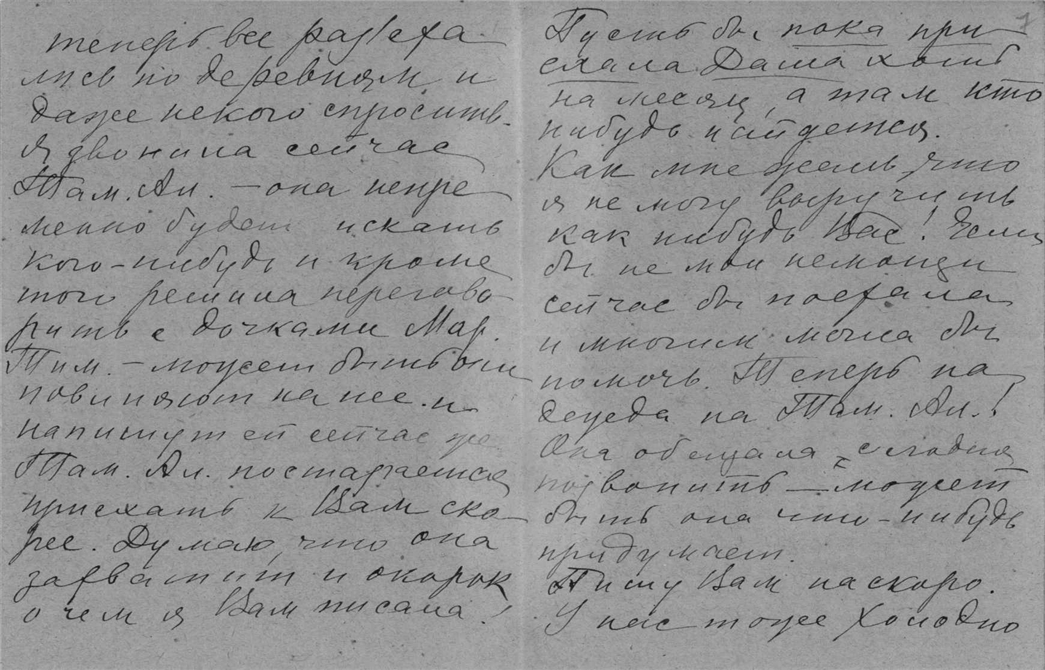 теперь все разъеха-
лись по деревням и
даже некого спросить.
Я звонила сейчас
Там. Ал. – она непре-
менно будет искать
кого-нибудь и кроме
того решила перегово-
рить с дочками Мар.
Тим. – может быть они
повлияют на нее и
напишут ей сейчас же
Там. Ал. постарается
приехать к Вам ско-
рее. Думаю, что она
захватит и окорок
о чем я Вам писала!
1
Пусть бы пока при-
слала Даша хоть
на месяц, а там кто
нибудь найдется.
Как мне жаль, что
я не могу выручить
как нибудь Вас! Если
бы не мои немощи
сейчас бы поехала
и многим могла бы
помочь. Теперь на-
дежда на Там. Ал.!
Она обещала сегодня
позвонить – может
быть она что-нибудь
придумает.
Пишу Вам наскоро.
У нас тоже холодно